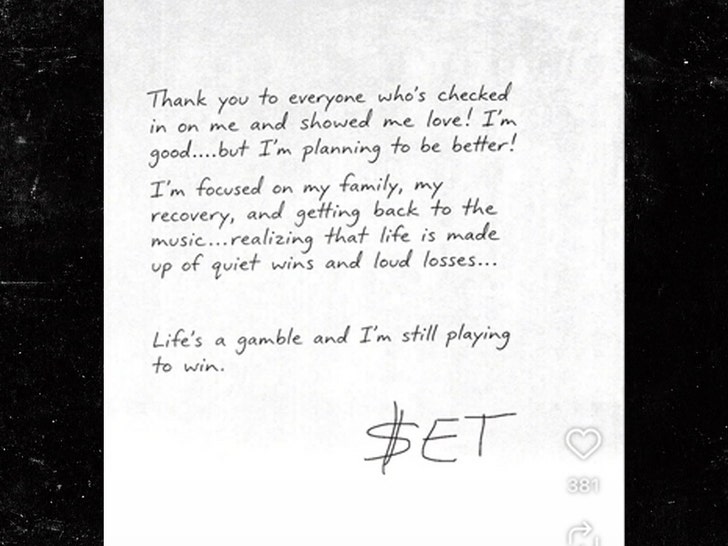 Thank you to everyone who's checked
in on me and showed me love! I'm
good....but I'm planning to be better!
I'm focused on my family, my
recovery, and getting back to the
music...realizing that life is made
up of quiet wins and loud losses...
Life's a gamble and I'm still playing
to win.
$ET
381